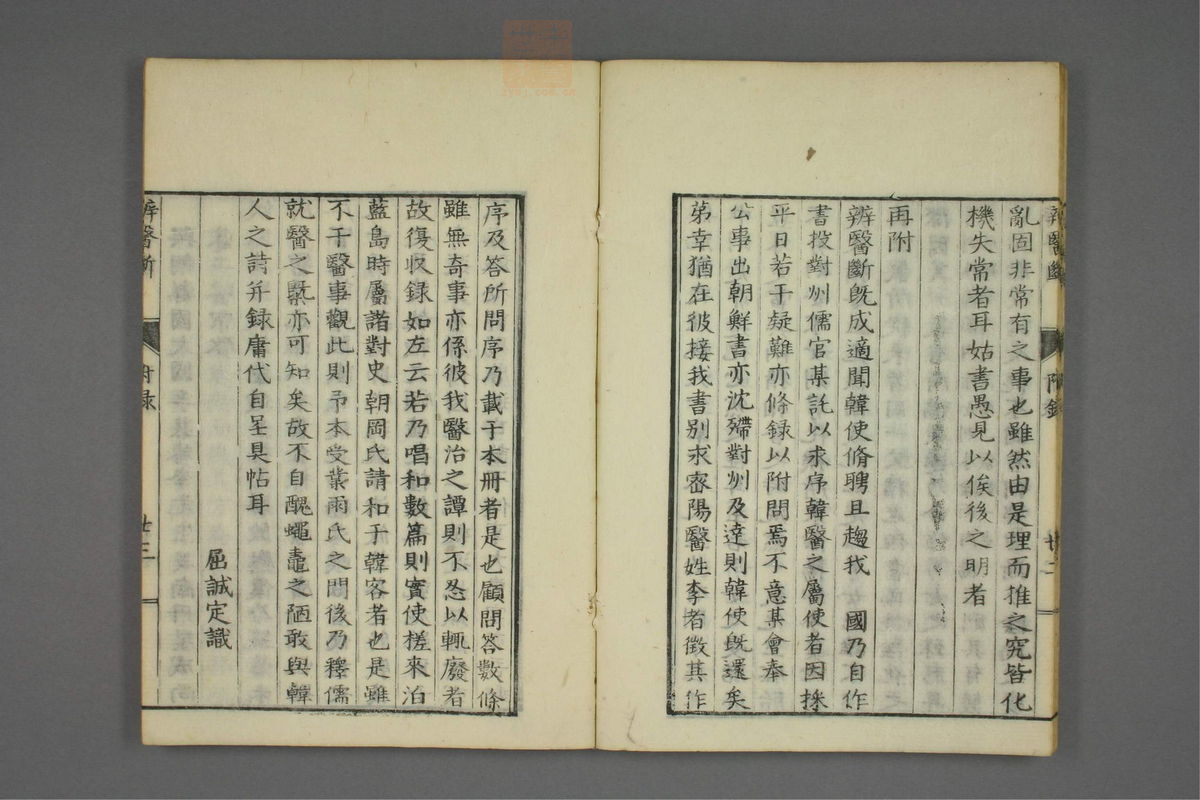 辨醫斷 附錄 廿二
亂固非常有之事也雖然由是理而推之究皆化
機失常者耳姑書愚見以俟後之明者
再附
辨醫斷旣成適聞韓使脩聘且趨我 國乃自作
書投對州儒官某託以求序韓醫之屬使者因採
平日若干疑難亦條録以附問焉不意某會奉
公事出朝鮮書亦沈殢對州及達則韓使旣還矣
苐幸猶在彼接我書別求密陽醫姓李者徵其作
序及答所問序乃載于本冊者是也顧問答數條
雖無奇事亦係彼我醫治之譚則不忍以輒廢者
故復収録如左云若乃唱和數篇則實使槎來泊
藍島時屬諸對史朝岡氏請和于韓客者也是雖
不干醫事觀此則予本受業雨氏之門後乃釋儒
就醫之槩亦可知矣故不自醜蠅鼃之陋敢與韓
人之詩并録庸代自呈具帖耳
屈誠定識
辨醫斷 附録 廿三